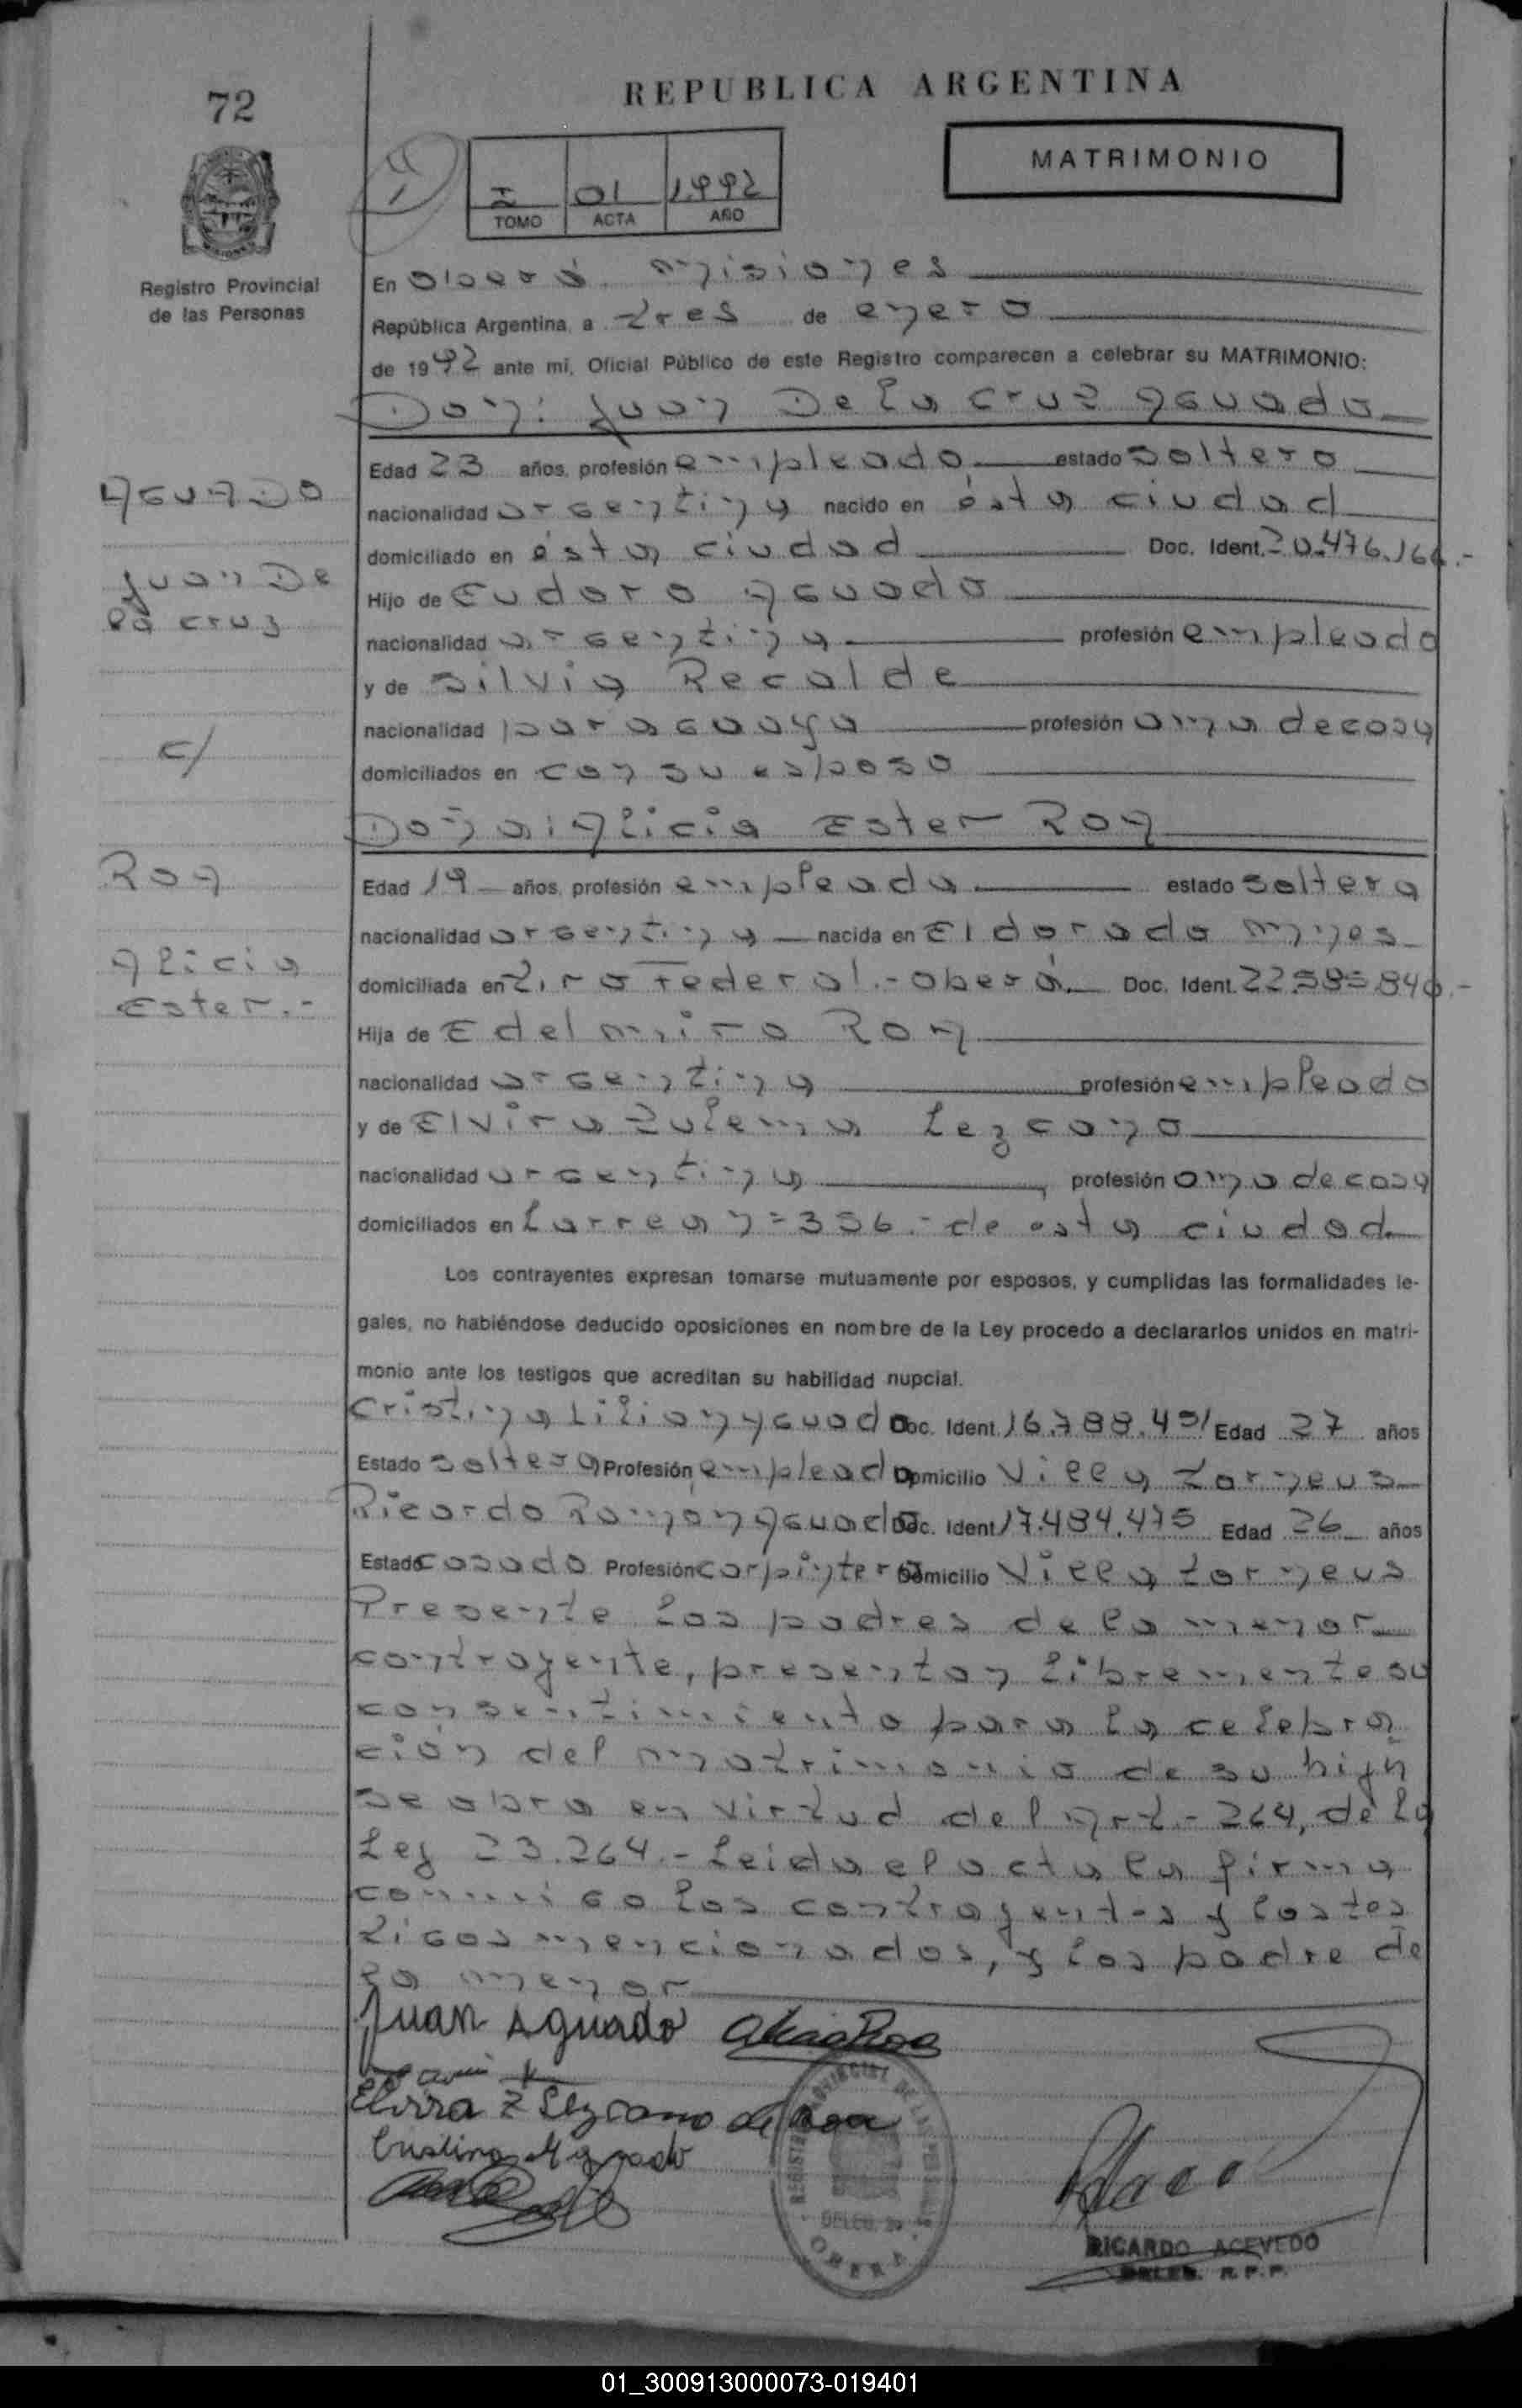 72
REPUBLICA ARGENTINA
MATRIMONIO
I 01 1.992
TOMO ACTA AÑO
Registro Provincial
de las Personas
En oberá misiones
República Argentina, a tres de enero
de 1992 ante mi, Oficial Público de este Registro comparecen a celebrar su MATRIMONIO:
Don: Juan De la cruz Aguado
Edad 23 años, profesión empleado estado soltero
AGUADO
nacionalidad argentina nacido en ésta ciudad
domiciliado en ésta ciudad Doc. Ident. 20.476.166.-
Juan De
la cruz
Hijo de Eudoro Aguado
nacionalidad argentina profesión empleado
y de Silvia Recalde
nacionalidad paraguaya profesión ama de casa
c/
domiciliados en con su esposo
Doña: Alicia Ester Roa
Roa
Edad 19 años, profesión empleada estado soltera
nacionalidad argentina nacida en Eldorado Mnes
Alicia
Ester.-
domiciliada en Tiro Federal.- oberá Doc. Ident. 22.585.840.-
Hija de Edelmiro Roa
nacionalidad argentina profesión empleado
y de Elvira Zulema Lezcano
nacionalidad argentina profesión ama de casa
domiciliados en Larrea n= 356.- de ésta ciudad
Los contrayentes expresan tomarse mutuamente por esposos, y cumplidas las formalidades le-
gales, no habiéndose deducido oposiciones en nombre de la Ley procedo a declararlos unidos en matri-
monio ante los testigos que acreditan su habilidad nupcial.
Cristina Lilian Aguado Doc. Ident. 16.788.451 Edad 27 años
Estado soltera Profesión empleada Domicilio Villa Torneus
Ricardo Ramon Aguado Doc. Ident. 17.484.475 Edad 26 años
Estado casado Profesión carpintero Domicilio Villa Torneus
Presente los padres de la menor
contrayente, presentan libremente su
consentimiento para la celebra
ción del matrimonio de su hija
se obra en virtud del Art.- 264, de la
Ley 23.264.- Leida el acta la firma
conmigo los contrayentes y los tes
tigos mencionados, y los padre de
la menor
Juan Aguado Alicia Roa
Elvira Z Lezcano de Roa
Cristina Aguado
REGISTRO PROVINCIAL DE LAS PERSONAS
DELEG.
OBERA
RICARDO ACEVEDO
DELEG. R.P.P.
01_300913000073-019401